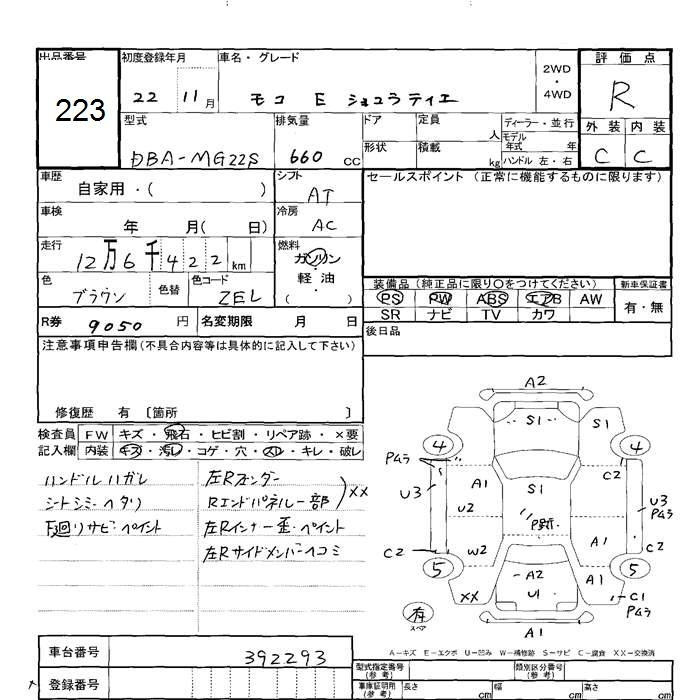 出品番号 初度登録年月 車名・グレード 評価点
223
22 11月 モコ E ショコラティエ 2WD・4WD R
型式 排気量 ドア 定員 人 ディーラー・並行 外装 内装
DBA-MG22S 660 cc 形状 積載 kg モデル年式 年 ハンドル 左・右 C C
車歴 自家用・( ) シフト AT セールスポイント(正常に機能するものに限ります)
車検 年 月( 日) 冷房 AC
走行 12万6千422km 燃料 ガソリン・軽油 ( )
色 ブラウン 色替 色コード ZEL
装備品(純正品に限り○をつけてください) 新車保証書
PS PW ABS エアB AW 有・無
SR ナビ TV カワ
R券 9050円 名変期限 月 日 後日品
注意事項申告欄(不具合内容等は具体的に記入して下さい)
修復歴 有 〔箇所 〕
検査員記入欄 FW キズ・飛石・ヒビ割・リペア跡・×要
内装 キズ・汚レ・コゲ・穴・スレ・キレ・破レ
ハンドル ハガレ
シートシミ・ヘタリ
下廻リサビ・ペイント
左Rフェンダー
Rエンドパネル一部 XX
左Rインナー歪・ペイント
左Rサイドメンバーヘコミ
A2
S1 S1
4 4
Pムラ C2
U3 A1 S1 U3
U2 Pムラ
C2 W2 A1 C2
5 A2 A1 5
XX U1 C1
Pムラ
有 スペア
A1
A-キズ E-エクボ U-凹み W-補修跡 S-サビ C-腐食 XX-交換済
車台番号 392293
登録番号
型式指定番号(参考) 類別区分番号(参考)
車庫証明用(参考) 長さ cm 幅 cm 高さ cm